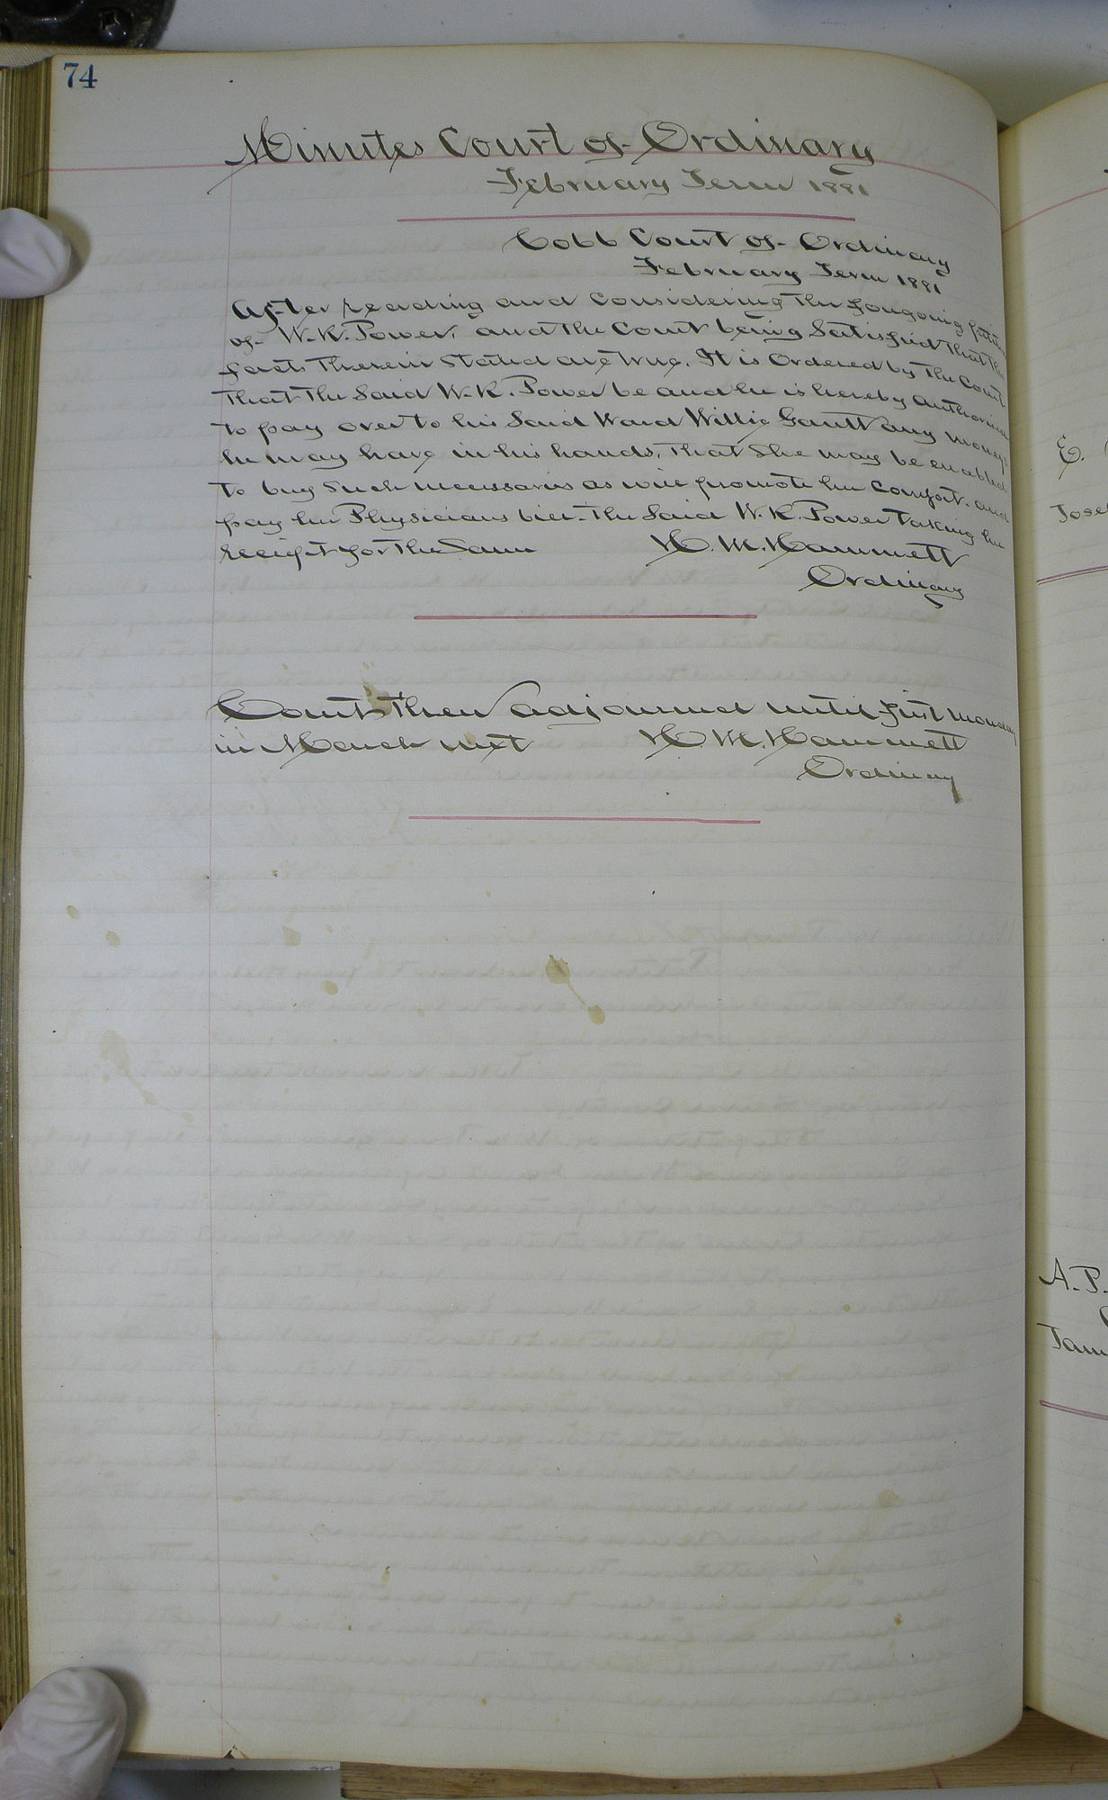 74
Minutes Court of Ordinary
February Term 1881
Cobb Court of Ordinary
February Term 1881
After reading and considering the foregoing petition
of W. K. Power, and the Court being Satisfied that the
facts therein stated are true. It is Ordered by the Court
That the Said W. K. Power be and he is hereby authorized
to pay over to his Said Ward Willie Gantt any moneys
he may have in his hands, that She may be enabled
to buy Such necessaries as will promote her Comfort and
pay her Physicians bill. The Said W. K. Power taking her
receipt for the Same H. M. Hammett
Ordinary
Court then adjourned until first monday
in March next H. M. Hammett
Ordinary
E.
A. P.